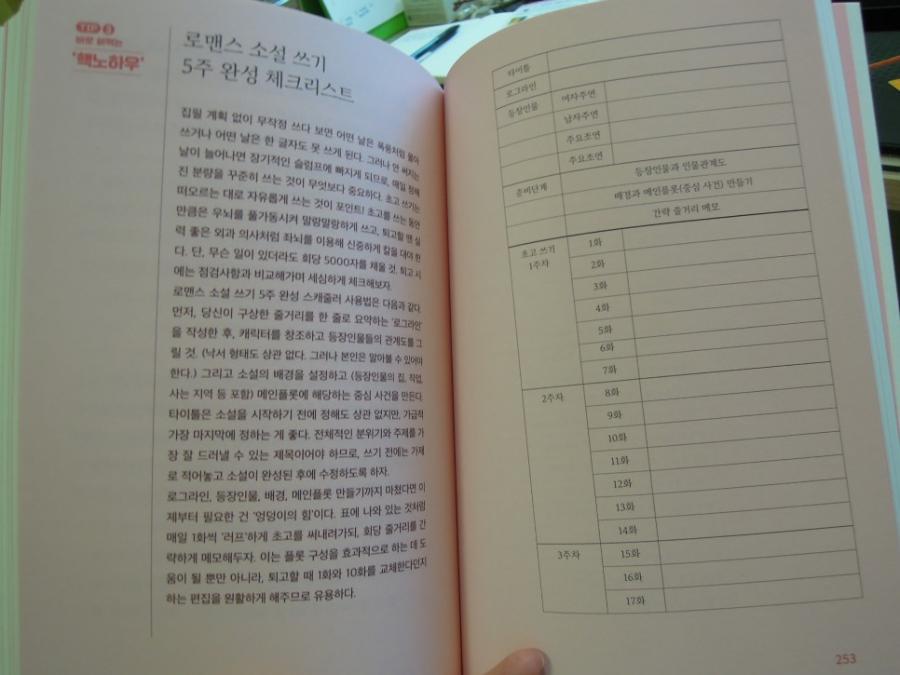 TIP 3
바로 써먹는
'핵노하우'
로맨스 소설 쓰기
5주 완성 체크리스트
집필 계획 없이 무작정 쓰다 보면 어떤 날은 폭풍처럼 몰아
쓰거나 어떤 날은 한 글자도 못 쓰게 된다. 그러나 안 써지는
날이 늘어나면 장기적인 슬럼프에 빠지게 되므로, 매일 정해
진 분량을 꾸준히 쓰는 것이 무엇보다 중요하다. 초고 쓰기는
떠오르는 대로 자유롭게 쓰는 것이 포인트! 초고를 쓰는 동안
만큼은 우뇌를 풀가동시켜 말랑말랑하게 쓰고, 퇴고할 땐 실
력 좋은 외과 의사처럼 좌뇌를 이용해 신중하게 칼을 대야 한
다. 단, 무슨 일이 있더라도 회당 5000자를 채울 것. 퇴고 시
에는 점검사항과 비교해가며 세심하게 체크해보자.
로맨스 소설 쓰기 5주 완성 스캐줄러 사용법은 다음과 같다.
먼저, 당신이 구상한 줄거리를 한 줄로 요약하는 '로그라인'
을 작성한 후, 캐릭터를 창조하고 등장인물들의 관계도를 그
릴 것. (낙서 형태도 상관 없다. 그러나 본인은 알아볼 수 있어야
한다.) 그리고 소설의 배경을 설정하고 (등장인물의 집, 직업,
사는 지역 등 포함) 메인플롯에 해당하는 중심 사건을 만든다.
타이틀은 소설을 시작하기 전에 정해도 상관 없지만, 가급적
가장 마지막에 정하는 게 좋다. 전체적인 분위기와 주제를 가
장 잘 드러낼 수 있는 제목이어야 하므로, 쓰기 전에는 가제
로 적어놓고 소설이 완성된 후에 수정하도록 하자.
로그라인, 등장인물, 배경, 메인플롯 만들기까지 마쳤다면 이
제부터 필요한 건 '엉덩이의 힘'이다. 표에 나와 있는 것처럼
매일 1화씩 '러프'하게 초고를 써내려가되, 회당 줄거리를 간
략하게 메모해두자. 이는 플롯 구성을 효과적으로 하는 데 도
움이 될 뿐만 아니라, 퇴고할 때 1화와 10화를 교체한다던지
하는 편집을 원활하게 해주므로 유용하다.
타이틀
로그라인
등장인물 여자주연
남자주연
주요조연
주요조연
준비단계 등장인물과 인물관계도
배경과 메인플롯(중심 사건) 만들기
간략 줄거리 메모
초고 쓰기
1주차
1화
2화
3화
4화
5화
6화
7화
2주차 8화
9화
10화
11화
12화
13화
14화
3주차 15화
16화
17화
253